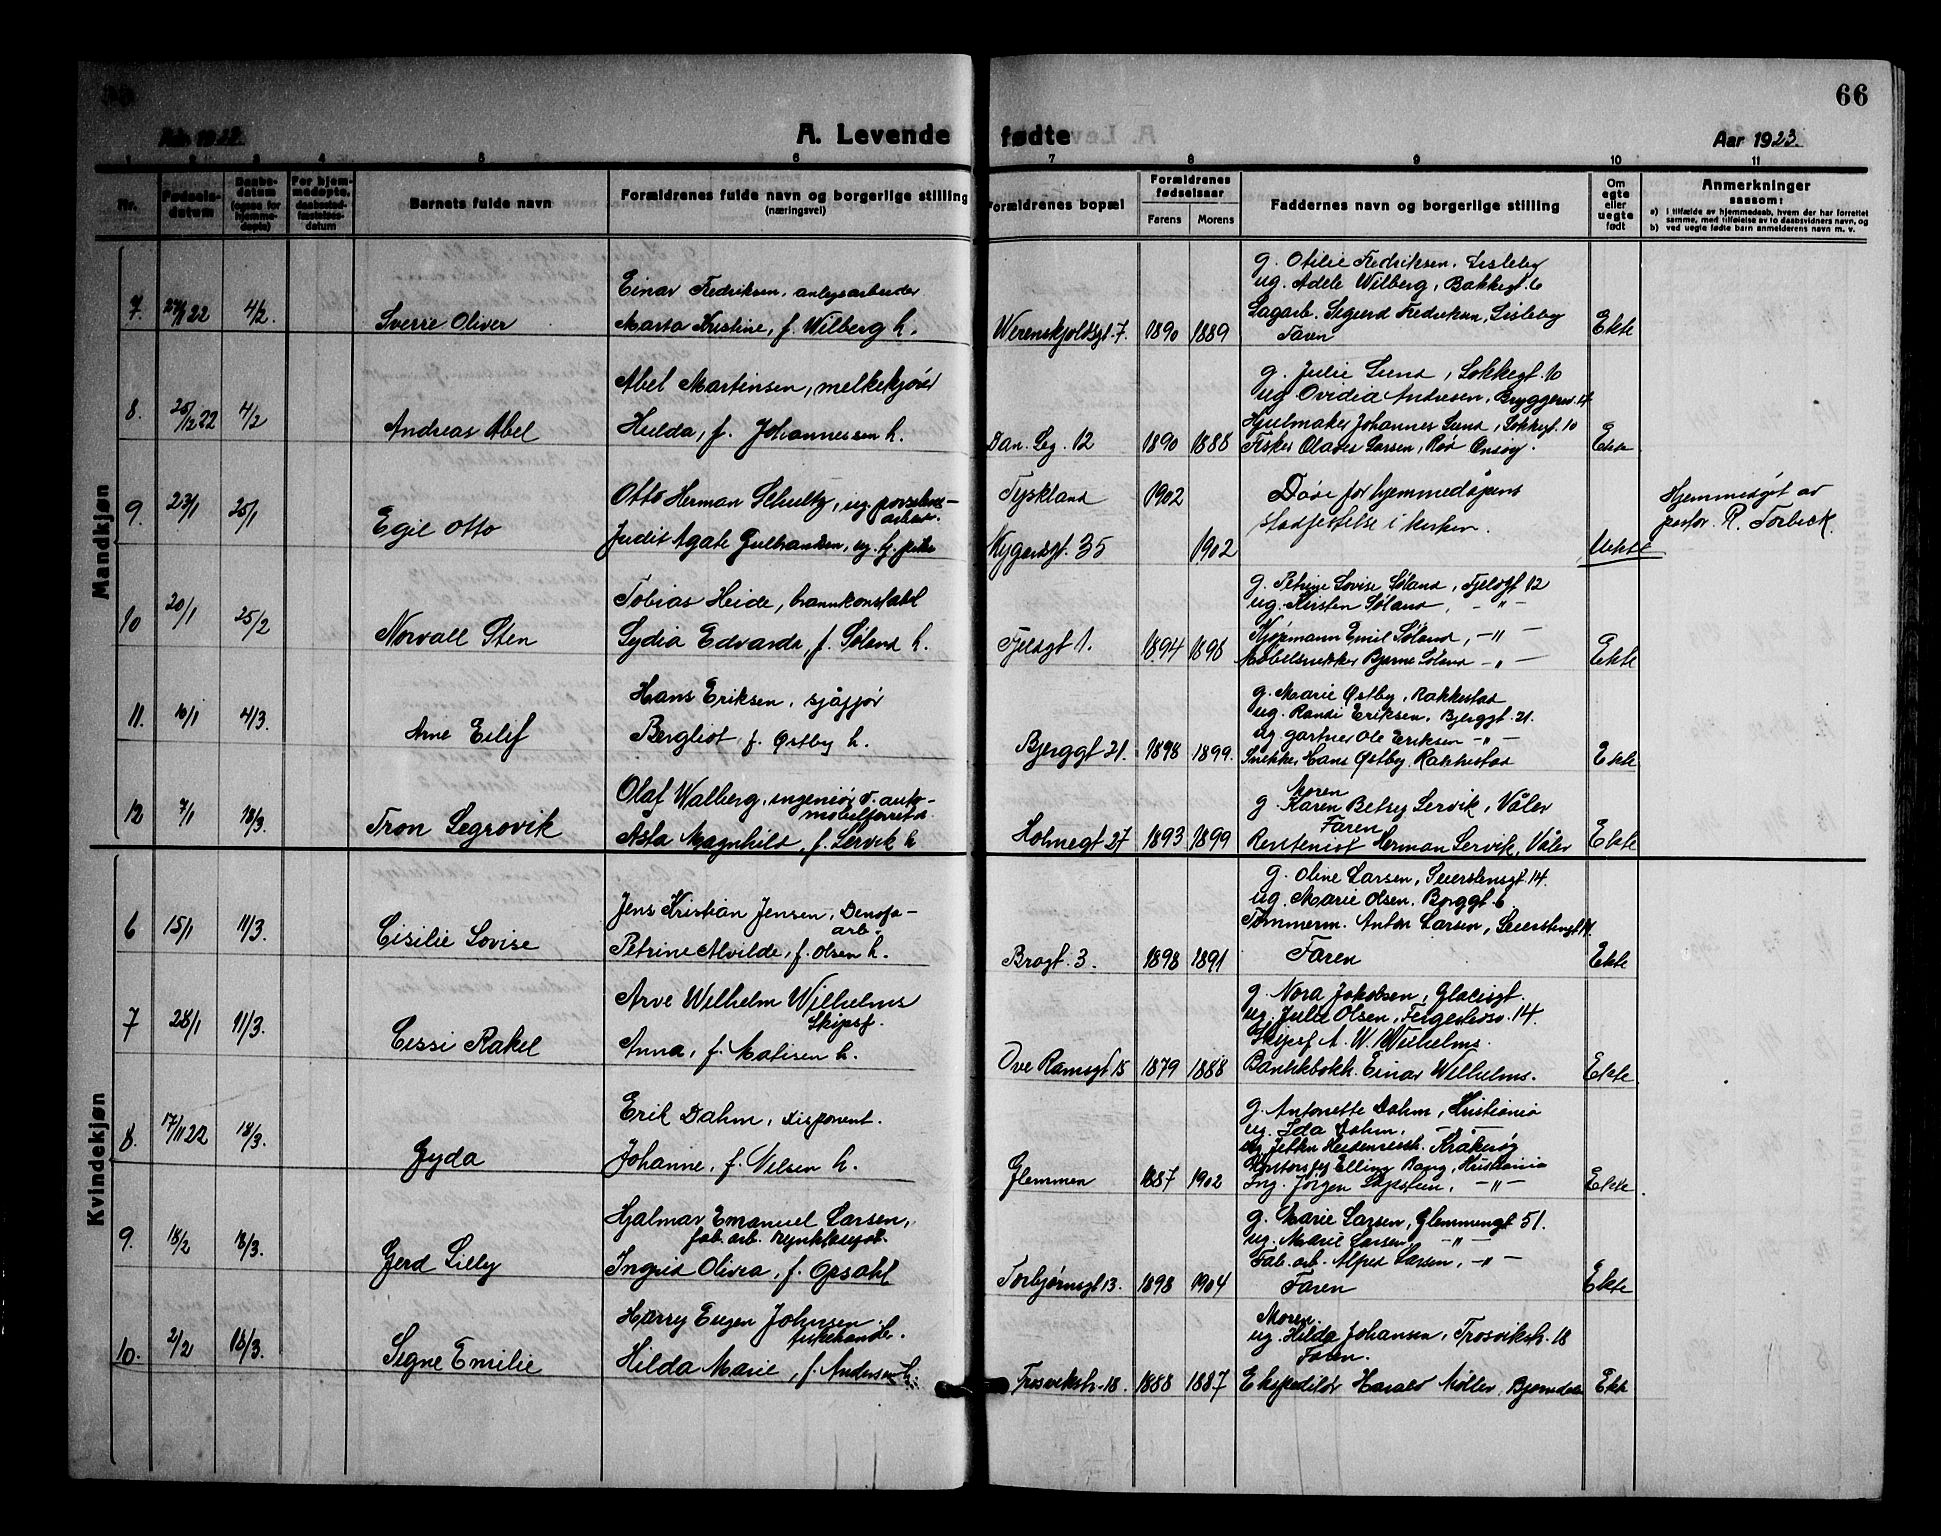 66
A. Levende fødte
Aar 1923.
1 2 3 4 5 6 7 8 9 10 11
Nr.
Fødselsdatum
Daabsdatum (ogsaa for hjemmedøpte)
For hjemmedøpte, daabsstadfæstelsesdatum
Barnets fulde navn
Forældrenes fulde navn og borgerlige stilling
(næringsvei)
Forældrenes bopæl
Forældrenes fødselsaar
Farens
Morens
Faddernes navn og borgerlige stilling
Om egte eller uegte født
Anmerkninger
saasom:
a) i tilfælde av hjemmedaab, hvem der har forrettet samme, med tilføielse av to daabsvidners navn, og
b) ved uegte fødte barn anmelderens navn m. v.
Mandkjøn
7. 4/2. Sverre Oliver
Einar Fredriksen, anlegsarbeider
Marta Kristine, f. Wilberg h.
Werenskjoldsgt. 7. 1890 1889
g. Otilie Fredriksen, Lisleby
ug. Adele Wilberg, Bakkegt. 6
Sagarb. Sigurd Fredriksen, Lisleby
Faren
Ekte
8. 25/12 22 4/2 Andreas Abel
Abel Martinsen, melkekjører
Hulda, f. Johannessen h.
Dan. Leg. 12 1890 1888
g. Julie Lund, Sokkegt. 10
ug Ovidia Andresen, Bryggeriv. 14
Hjulmaker Johannes Lund, Sokkegt. 10
Fisker Olaves Larsen, Rød Onsøy.
Ekte
9. 23/1 25/1 Egil Otto
Otto Herman Schultz, ug. porselens-
arbeider.
Judit Agate Gulbransen, ug. tj. pike
Tyskland 1902
Nygårdsgt. 35 1902
Døde før hjemmedåpens
stadfestelse i kirken.
Uekte
Hjemmedøpt av
pastor R. Torbeck.
10 20/1 25/2 Norvall Sten
Tobias Heide, brannkonstabel
Lydia Edvarda, f. Søland h.
Fjeldgt 1. 1894 1898
g. Petrine Lovise Søland, Fjeldgt 12
ug. Kirsten Søland, -"-
Kjøpmann Emil Søland, -"-
Møbelsnekker Bjarne Søland -"-
Ekte
11. 4/3. Arne Eilif
Hans Eriksen, sjåfør
Bergliot f. Østby h.
Bjerggt 21. 1898 1899.
g. Marie Østby, Rakkestad
ug. Randi Eriksen, Bjerggt. 21.
ug gartner Ole Eriksen -"-
Snekker Hans Østby, Rakkestad
Ekte
12 7/1 18/3. Tron Segrovik
Olaf Walberg, ingeniør v. auto-
mobilforretn.
Åsta Magnhild, f. Servik h
Holmegt 27 1893 1899
Moren
g. Karen Betsy Servik, Våler
Faren
Rentenist Herman Servik, Våler
Ekte
Kvindekjøn
6 15/1 11/3. Cisilie Lovise
Jens Kristian Jensen, Denofa-
arb.
Petrine Alvilde, f. Olsen h.
Brogt. 3. 1898 1891
g. Oline Larsen, Seierstensgt 14.
ug. Marie Olsen, Borggt 6
Tømmerm. Anton Larsen, Seierstensgt 14.
Faren
Ekte
7 28/1 11/3. Cissi Rakel
Arve Wilhelm Wilhelms
Skipsf.
Anna, f. Matisen h.
Ove Ramsgt 15 1879 1888
g. Nora Jakobsen, Glacisgt.
ug. Julie Olsen, Fergestedsv. 14.
Skipsf A. W. Wilhelms.
Bankbokh. Einar Wilhelms.
Ekte
8. 17/11 22 18/3. Gyda
Erik Dahm, disponent.
Johanne, f. Nilsen h.
Glemmen 1887 1902
g. Antonette Dahm, Kristiania
ug. Ida Dahm, -"-
Kråkerøy
Elling Bang, Kristiania
Ing. Jørgen -"-
Ekte
9. 18/2 18/3. Gerd Lilly
Hjalmar Emanuel Larsen,
fab. arb.
Ingrid Olivia, f. Opsahl
Torbjørnsgt 13. 1898 1904
g. Marie Larsen, Glemmengt 51.
ug. Marie Larsen, -"-
Fab. arb. Alfred Larsen, -"-
Faren
Ekte
10. 2/2 18/3. Signe Emilie
Harry Eugen Johnsen
fiskehandler.
Hilda Marie, f. Andersen h.
Trosvikstr. 18. 1888 1887
Moren.
ug. Hilda Johansen, Trosvikstr. 18
Faren.
Ekspeditør Harald Møller, Bjørndalen
Ekte